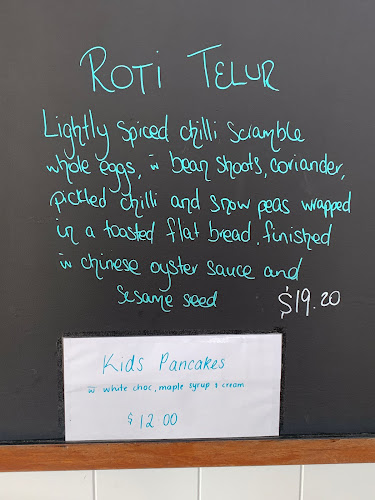 ROTI TELUR
Lightly spiced chilli scramble
whole eggs, w̄ bean shoots, coriander,
pickled chilli and snow peas wrapped
in a toasted flat bread, finished
w̄ chinese oyster sauce and
sesame seed $19.20
Kids Pancakes
w̄ white choc, maple syrup & cream
$12.00